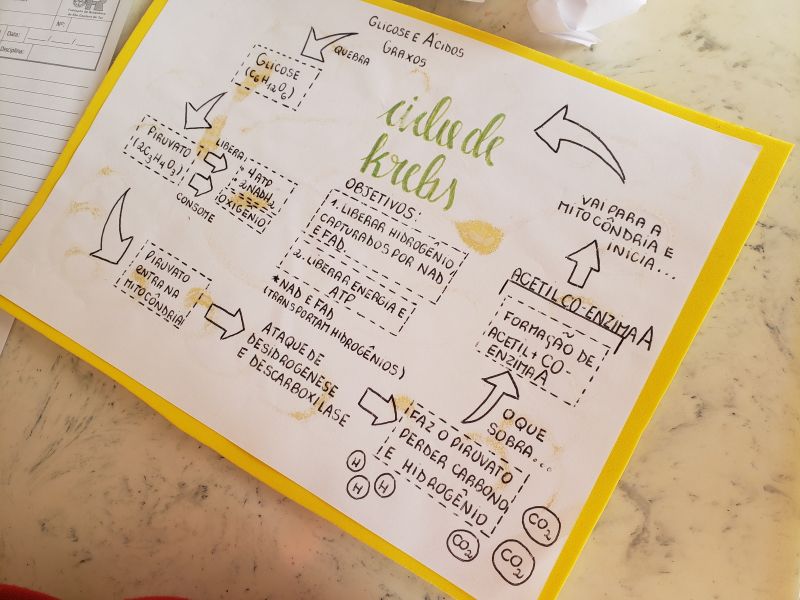 GLICOSE E ÁCIDOS
GRAXOS
QUEBRA
GLICOSE
(C6H12O6)
ciclo de
krebs
PIRUVATO
(2C3H4O3)
LIBERA:
• 4 ATP
• 2NADH2
OXIGÊNIO
CONSOME
PIRUVATO
ENTRA NA
MITOCÔNDRIA!
ATAQUE DE
DESIDROGENESE
E DESCARBOXILASE
OBJETIVOS:
1. LIBERAR HIDROGÊNIO,
CAPTURADOS POR NAD
E FAD.
2. LIBERAR ENERGIA E
ATP
*NAD E FAD
(TRANSPORTAM HIDROGÊNIOS)
FAZ O PIRUVATO
PERDER CARBONO
E HIDROGÊNIO
H
H
H
CO2
CO2
CO2
O QUE
SOBRA...
ACETIL CO-ENZIMA A
FORMAÇÃO DE
ACETIL + CO-
ENZIMA A
VAI PARA A
MITOCÔNDRIA E
INICIA...
Nº:
Data:
Disciplina: